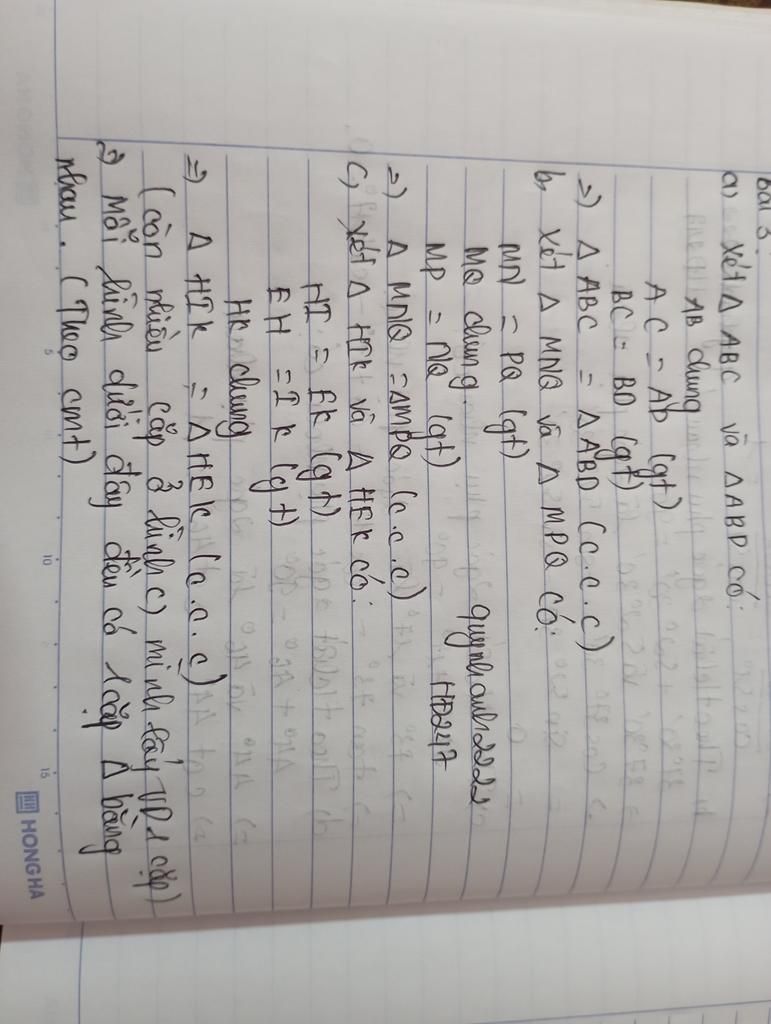 Bài 3.
a, Xét Δ ABC và Δ ABD có:
AB chung
AC = AD (gt)
BC = BD (gt)
=) Δ ABC = Δ ABD (c.c.c)
b, Xét Δ MNQ và Δ MPQ có:
MN = PQ (gt)
MQ chung. quynhanh2222
MP = NQ (gt) HĐ247
=) Δ MNQ = ΔMPQ (c.c.c)
c, Xét Δ HIK và Δ HEK có:
HI = EK (gt)
EH = IK (gt)
HK chung
=) Δ HIK = Δ HEK (c.c.c)
(còn nhiều cặp ở hình c) mình lấy VD 1 cặp)
=) mỗi hình dưới đây đều có 1 cặp Δ bằng
nhau. (Theo cmt)
5 10 15
HONG HA